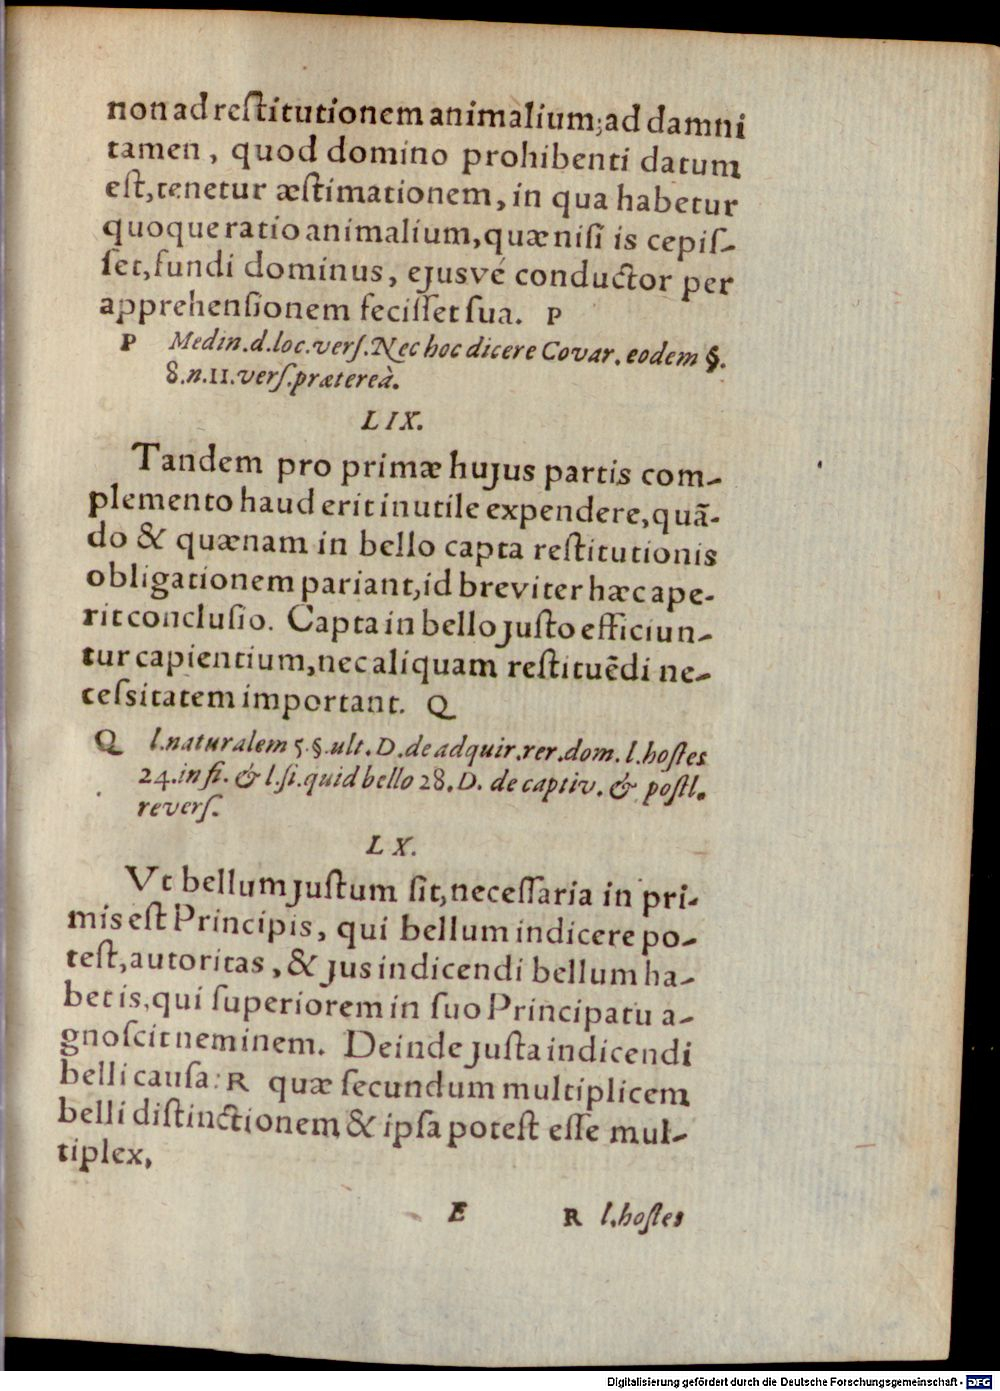 non ad reſtitutionem animalium; ad damni
tamen, quod domino prohibenti datum
eſt, tenetur æſtimationem, in qua habetur
quoque ratio animalium, quæ niſi is cepiſ-
ſet, fundi dominus, ejusvé conductor per
apprehenſionem feciſſet ſua. P
P Medin. d. loc. verſ. Nec hoc dicere Covar. eodem §.
8. n. 11. verſ. prætereà.
LIX.
Tandem pro primæ hujus partis com-
plemento haud erit inutile expendere, quã-
do & quænam in bello capta reſtitutionis
obligationem pariant, id breviter hæc ape-
rit concluſio. Capta in bello juſto efficiun-
tur capientium, nec aliquam reſtituẽdi ne-
ceſsitatem important. Q
Q l. naturalem 5. §. ult. D. de adquir. rer. dom. l. hoſtes
24. in fi. & l. ſi. quid bello 28. D. de captiv. & poſtl.
reverſ.
LX.
Vt bellum juſtum ſit, neceſſaria in pri-
mis eſt Principis, qui bellum indicere po-
teſt, autoritas, & jus indicendi bellum ha-
bet is, qui ſuperiorem in ſuo Principatu a-
gnoſcit neminem. Deinde juſta indicendi
belli cauſa: R quæ ſecundum multiplicem
belli diſtinctionem & ipſa poteſt eſſe mul-
tiplex,
E R l. hoſtes
Digitalisierung gefördert durch die Deutsche Forschungsgemeinschaft - DFG